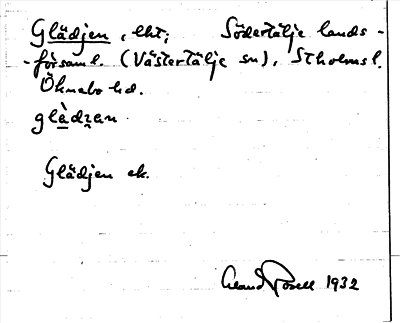 Glädjen, lht; Södertälje lands-
-församl. (Västertälje sn), Stholms l.
Öknebo hd.
glàdzan
Glädjen ek.
1932